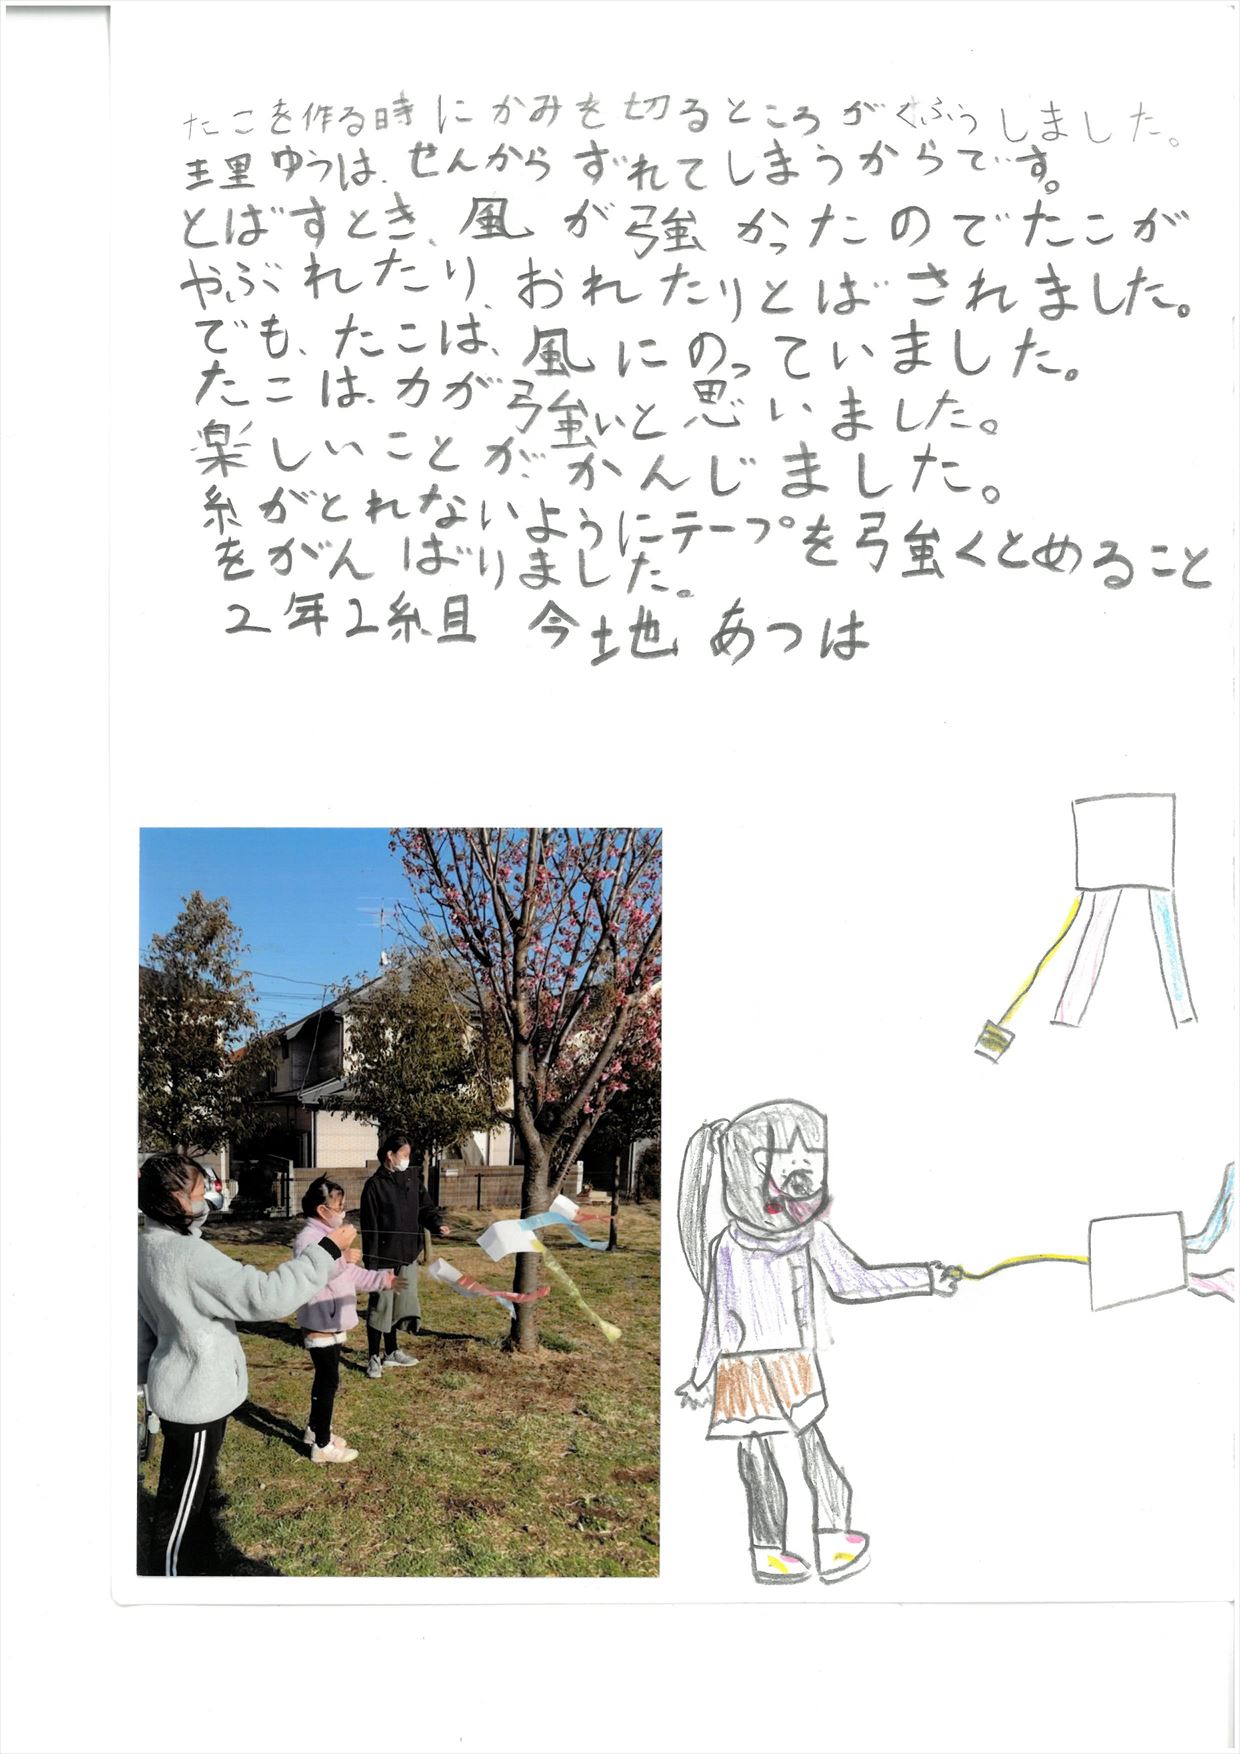 たこを作る時にかみを切るところがくふうしました。
理ゆうは、せんからずれてしまうからです。
とばすとき、風が強かったのでたこが
やぶれたり、おれたりとばされました。
でも、たこは、風にのっていました。
たこは、力が強いと思いました。
楽しいことが、かんじました。
糸がとれないようにテープを強くとめること
をがんばりました。
2年2組 今地 あつは